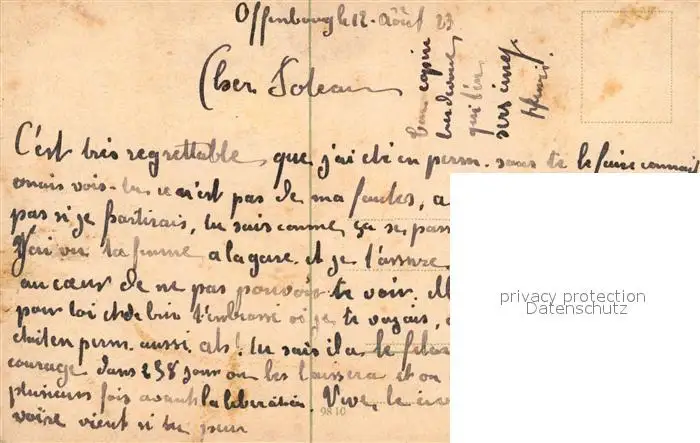 Offenbourgh 12. Août 23
Cher Toleau
C'est très regrettable, que j'ai été en perm. sans te le faire connait
mais vois-tu ce n'est pas de ma fautes, a
pas si je partirais, tu sais comme ça se pass
J'ai vu ta femme a la gare. et je t'assure
au cœur de ne pas pouvoir te voir. M
pour toi et de bien t'embrasse si je te voyais,
était en perm. aussi. ah! tu sais il a le
courage dans 258 jour on les laissera et on
plusieurs fois avant la libération. Vive, le
voire vient si tu peux
Ton copin
qui t'en
sers
Henri.
9810
privacy protection
Datenschutz